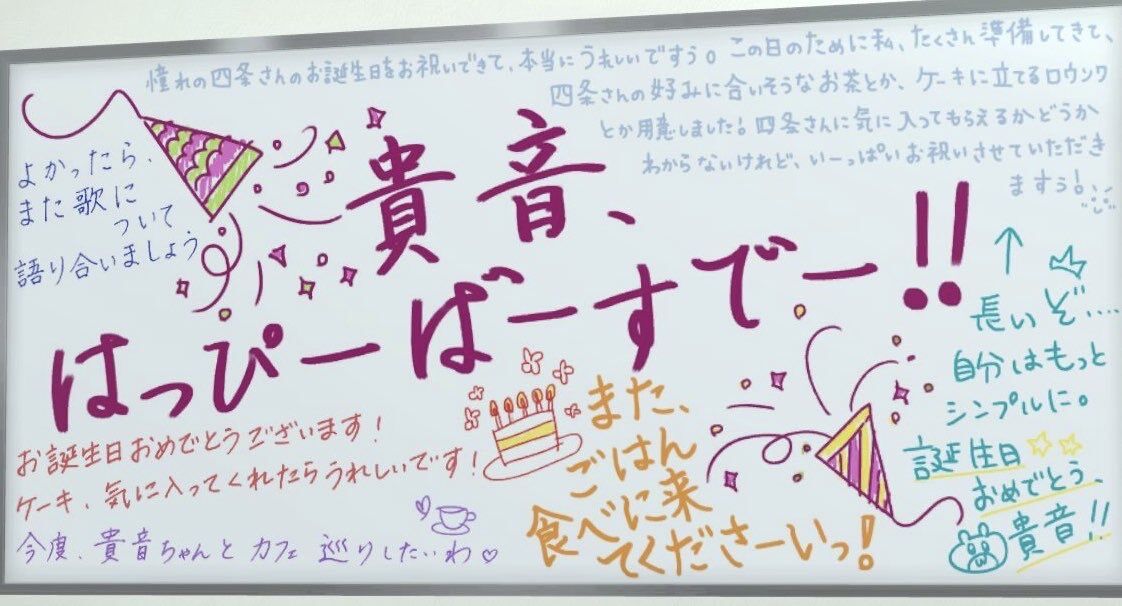 憧れの四条さんのお誕生日をお祝いできて、本当にうれしいですぅ。この日のために私、たくさん準備してきて、
四条さんの好みに合いそうなお茶とか、ケーキに立てるロウソク
とか用意しました!四条さんに気に入ってもらえるかどうか
わからないけれど、いーっぱいお祝いさせていただき
ますぅ!
よかったら、
また歌に
ついて
語り合いましょう
貴音、
はっぴーばーすでー!!
↑
長いぞ....
自分はもっと
シンプルに。
誕生日
おめでとう、
貴音!!
お誕生日おめでとうございます!
ケーキ、気に入ってくれたらうれしいです!
今度、貴音ちゃんとカフェ巡りしたいわ♡
また、
ごはん
食べに来
てくださーいっ!